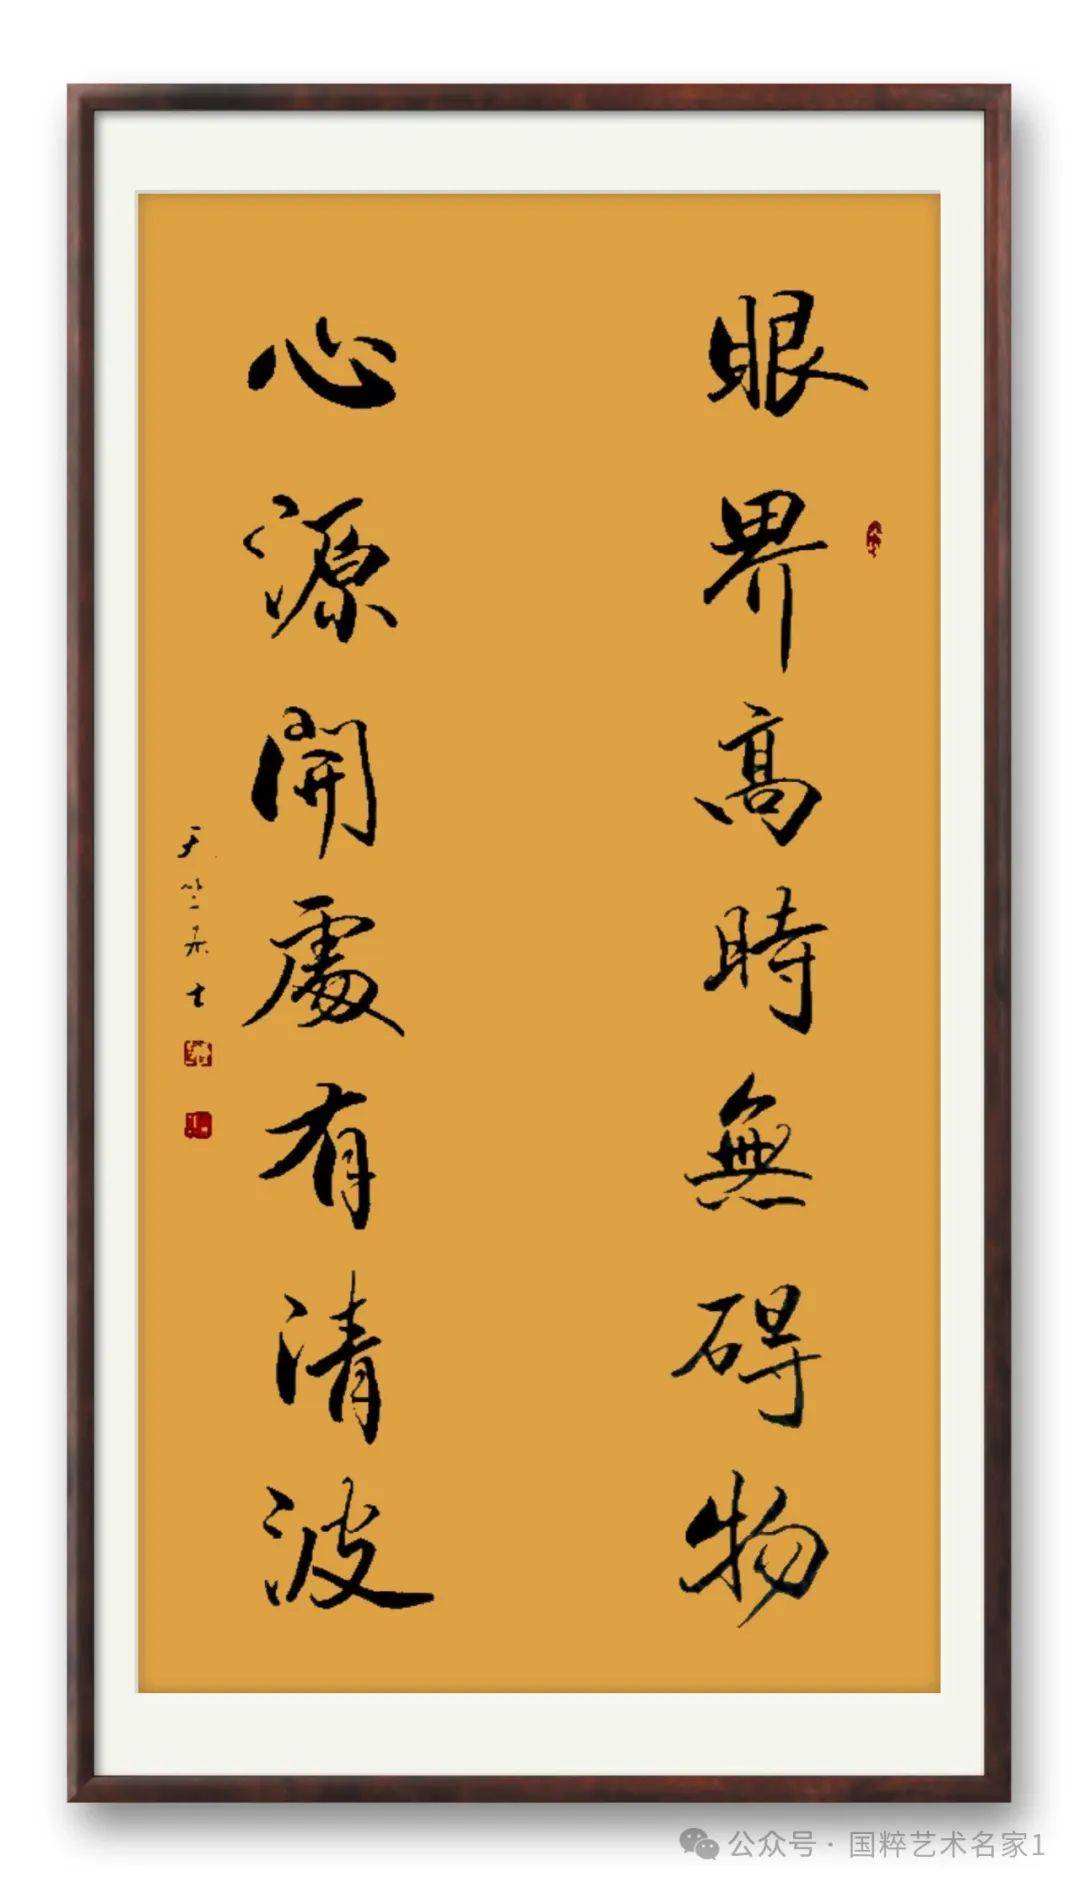 眼界高時無碍物
心源開處有清波
天竺柔士
公众号 · 国粹艺术名家1